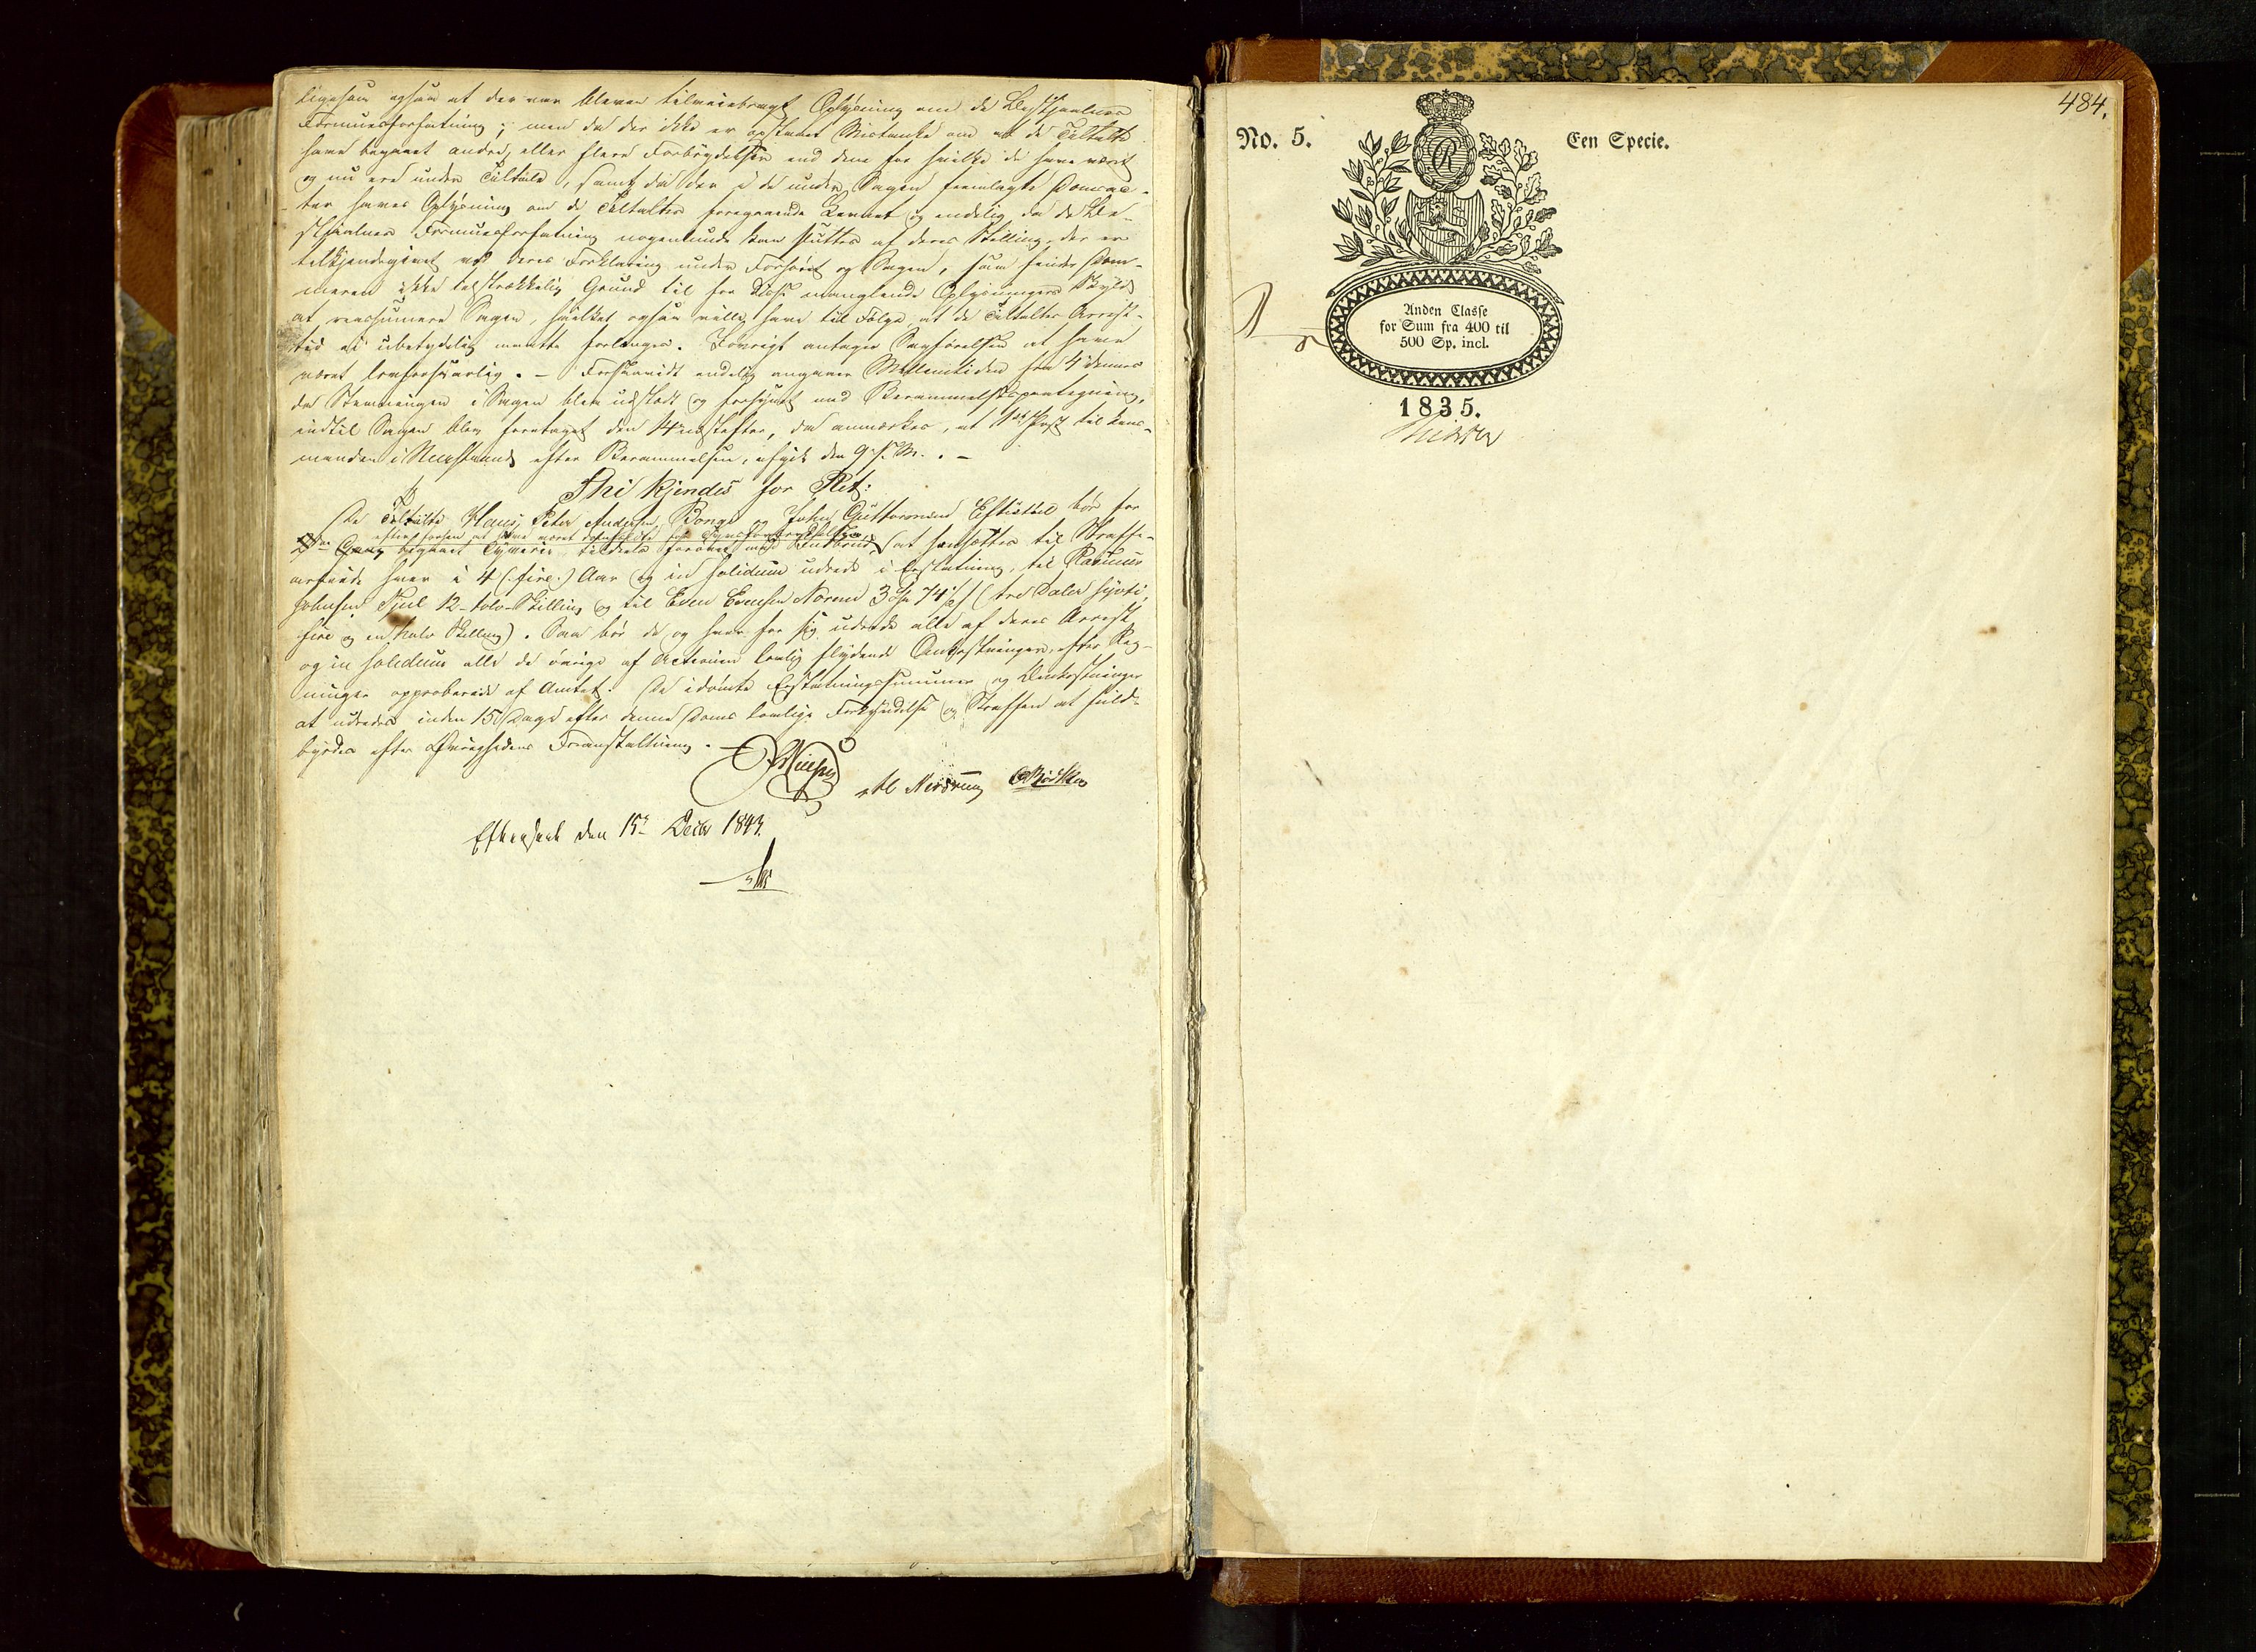 ligesom ogsaa at der var bleven tilveiebragt Oplysning om de Bestjaalnes
Formuesforfatning; men da der ikke er opstaaet Mistanke om at de Tiltalte
have begaaet andre eller flere Forbrydelser end dem for hvilke de have været
og nu ere under Tiltale, samt da der i de under Sagen fremlagte Domsac-
ter haves Oplysning om de Tiltaltes foregaaende Levnet og endelig da de Be-
stjaalnes Formuesforfatning nogenlunde kan sluttes af deres Stilling, der er
tilkjendegivet ved deres Forklaring under Forhøret og Sagen, saa finder Dom-
meren ikke tilstrækkelig Grund til for disse manglende Oplysningers Skyld
at reassumere Sagen, hvilket ogsaa vilde have til Følge, at de Tiltaltes Arrest-
tid ei ubetydelig maatte forlænges. Iøvrigt antages Sagførelsen at have
været lovforsvarlig. – Forsaavidt endelig angaaer Mellemtiden fra 4 dennes
da Stevningen i Sagen blev udstedt og forsynet med Berammelsespaategning,
indtil Sagen blev foretaget den 14 næstefter, da anmærkes, at 1ste Post til Lens-
manden i efter Berammelsen, afgik den 9 s. M. . –
Thi kjendes for Ret:
De Tiltalte Hans Peter Andersen Bonge og John Guttormsen bør for
efter forhen at have været
Gang begaaet Tyverie tildeels forøvet med Indbrud, at hensættes til Straffe-
arbeide hver i 4 (fire) Aar og in solidum udrede i Erstatning, til Rasmus
Johnsen 12 - tolv - Skilling og til Even Evensen 3 Spd 74½ s (tre Daler syvti
fire og en halv Skilling). Saa bør de og hver for sig udrede alle af deres Arrest
og in solidum alle de øvrige af Actionen lovlig flydende Omkostninger, efter Reg-
ninger approberede af Amtet. De idømte Erstatningssummer og Omkostninger
at udredes inden 15 Dage efter denne Doms lovlige Forkyndelse og Straffen at fuld-
byrdes efter Øvrighedens Foranstaltning. –
Efterseet den 15de Decbr 1843.
484.
No. 5.
Een Specie.
R
Anden Classe
for Sum fra 400 til
500 Sp. incl.
1835.